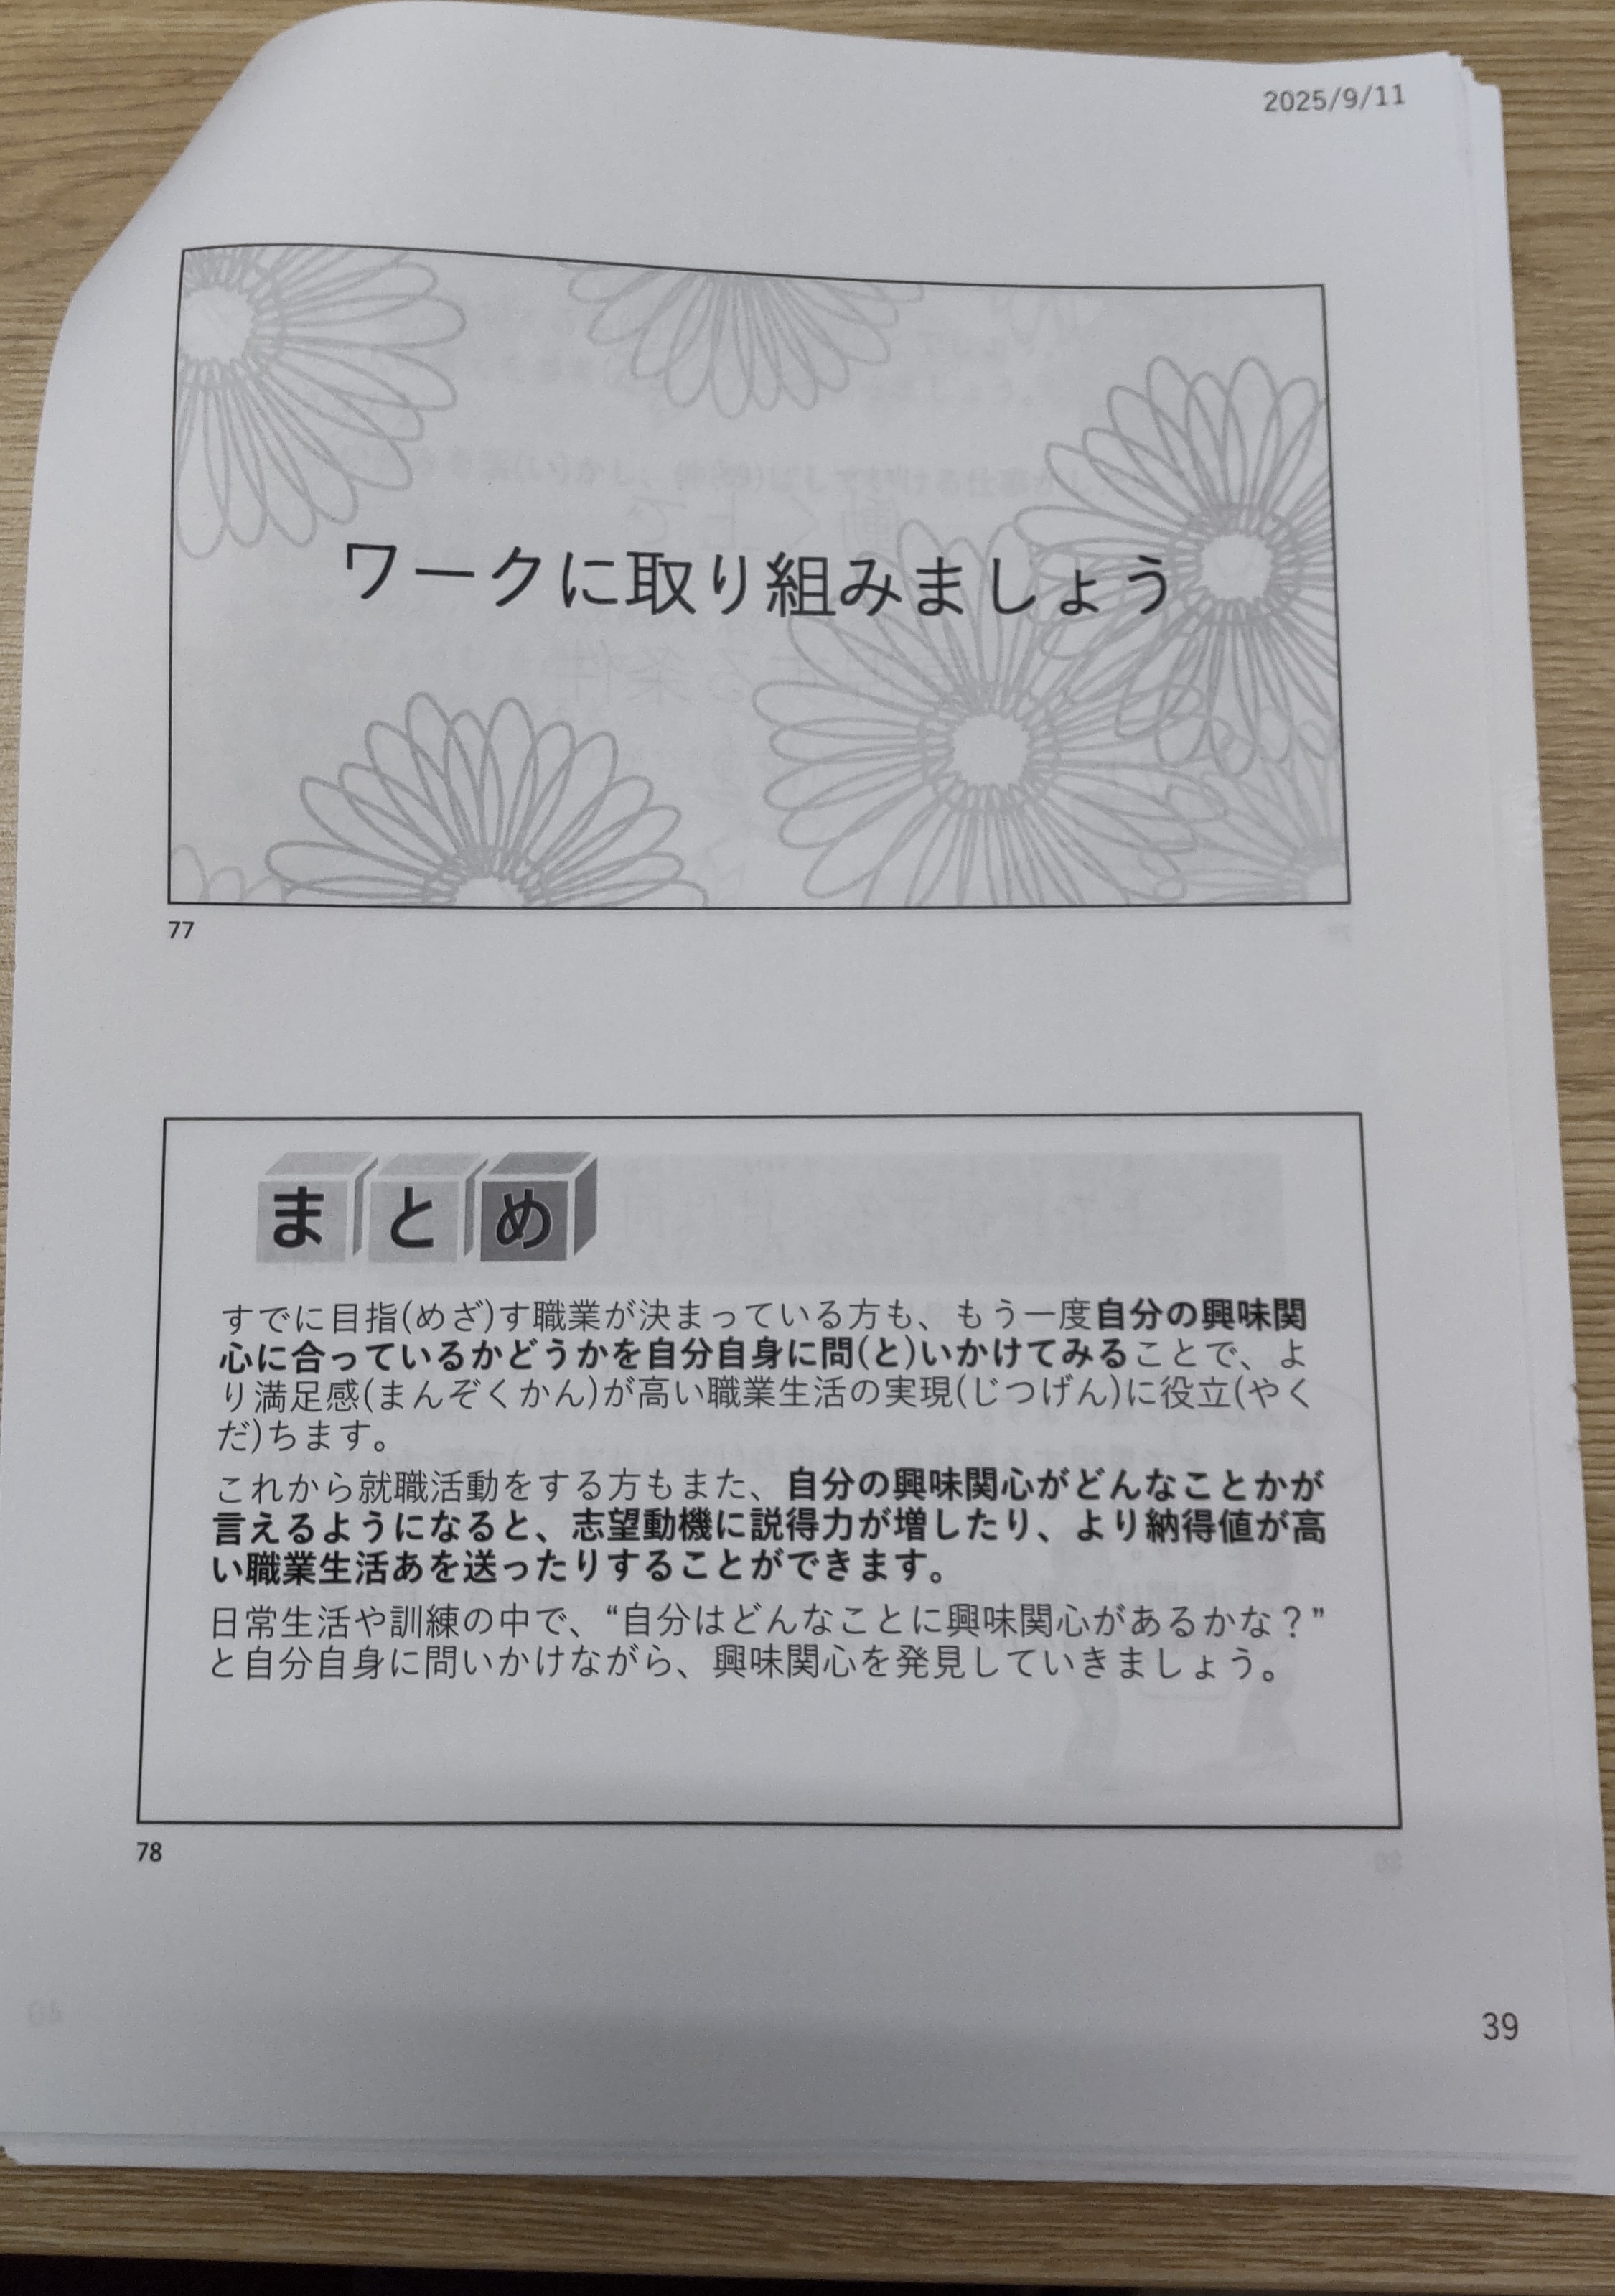 2025/9/11
ワークに取り組みましょう
77
まとめ
すでに目指(めざ)す職業が決まっている方も、もう一度自分の興味関
心に合っているかどうかを自分自身に問(と)いかけてみることで、よ
り満足感(まんぞくかん)が高い職業生活の実現(じつげん)に役立(やく
だ)ちます。
これから就職活動をする方もまた、自分の興味関心がどんなことかが
言えるようになると、志望動機に説得力が増したり、より納得値が高
い職業生活あを送ったりすることができます。
日常生活や訓練の中で、“自分はどんなことに興味関心があるかな？”
と自分自身に問いかけながら、興味関心を発見していきましょう。
78
39